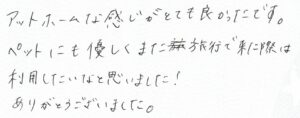 アットホームな感じがとても良かったです。
ペットにも優しくまた旅行で来た際は
利用したいなと思いました!
ありがとうございました。